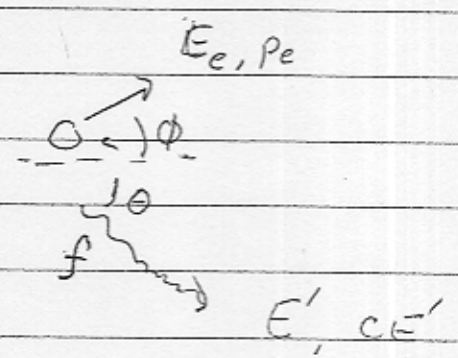 Ee, Pe
ϕ
θ
f
E', cE'